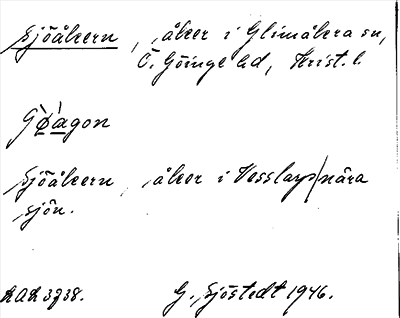 Sjöåkern, åker i Glimåkra sn,
Ö. Göinge hd, Krist. l.
Sjöåkern, åker i Vesslarp nära
sjön.
LAL 3738. G. Sjöstedt 1946.